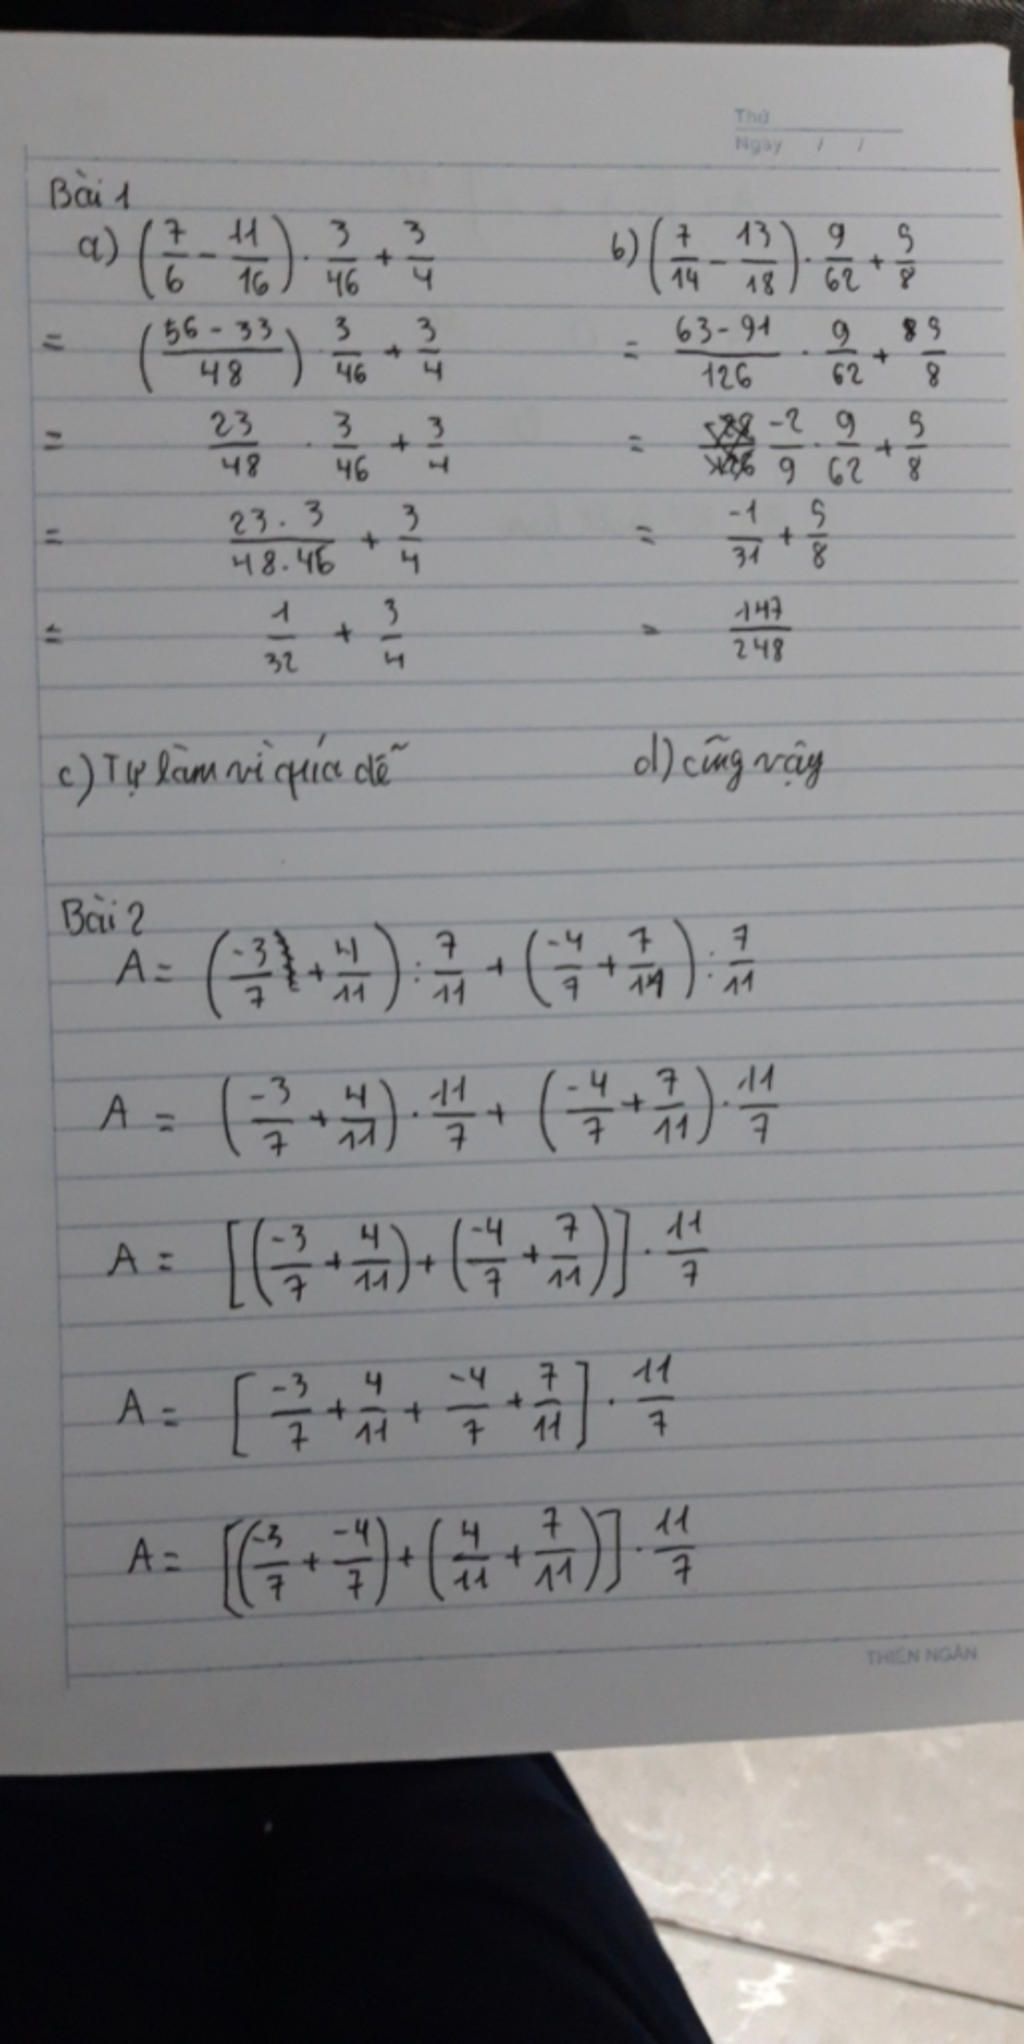 Thứ
Ngày / /
Bài 1
a) (7/6 - 11/16) . 3/46 + 3/4
= ((56 - 33)/48) . 3/46 + 3/4
= 23/48 . 3/46 + 3/4
= (23 . 3)/(48 . 46) + 3/4
= 1/32 + 3/4
b) (7/14 - 13/18) . 9/62 + 5/8
= (63 - 91)/126 . 9/62 + 5/8
= -2/9 . 9/62 + 5/8
= -1/31 + 5/8
= 147/248
c) Tự làm vì quá dễ
d) cũng vậy
Bài 2
A = (-3/7 + 4/11) : 7/11 + (-4/7 + 7/11) : 7/11
A = (-3/7 + 4/11) . 11/7 + (-4/7 + 7/11) . 11/7
A = [(-3/7 + 4/11) + (-4/7 + 7/11)] . 11/7
A = [-3/7 + 4/11 + -4/7 + 7/11] . 11/7
A = [(-3/7 + -4/7) + (4/11 + 7/11)] . 11/7
THIÊN NGÂN